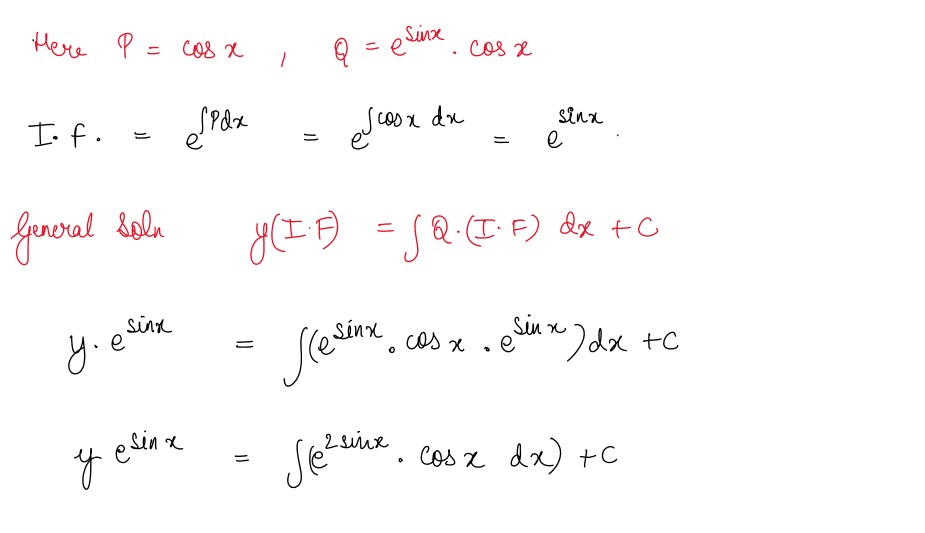 Here P = cos x , Q = e^sinx . cos x
I.f. = e^∫Pdx = e^∫cosx dx = e^sinx .
General Soln y(I.F) = ∫Q.(I.F) dx + C
y. e^sinx = ∫(e^sinx . cos x . e^sinx)dx + C
y e^sinx = ∫(e^2sinx . cos x dx) + C